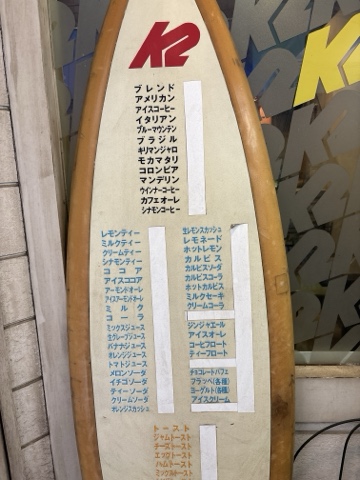 K2
ブレンド
アメリカン
アイスコーヒー
イタリアン
ブルーマウンテン
ブラジル
キリマンジャロ
モカマタリ
コロンビア
マンデリン
ウインナーコーヒー
カフェオーレ
シナモンコーヒー
レモンティー
ミルクティー
クリームティー
シナモンティー
ココア
アイスココア
アーモンドオーレ
アイスアーモンドオーレ
ミルク
コーラ
ミックスジュース
生グレープジュース
バナナジュース
オレンジジュース
トマトジュース
メロンソーダ
イチゴソーダ
ティーソーダ
クリームソーダ
オレンジスカッシュ
生レモンスカッシュ
レモネード
ホットレモン
カルピス
カルピスソーダ
カルピスコーラ
ホットカルピス
ミルクセーキ
クリームコーラ
ジンジャエール
アイスオーレ
コーヒフロート
ティーフロート
チョコレートパフェ
フラッペ(各種)
ヨーグルト(各種)
アイスクリーム
トースト
ジャムトースト
チーズトースト
エッグトースト
ハムトースト
ミックストースト
K2
K2
K2